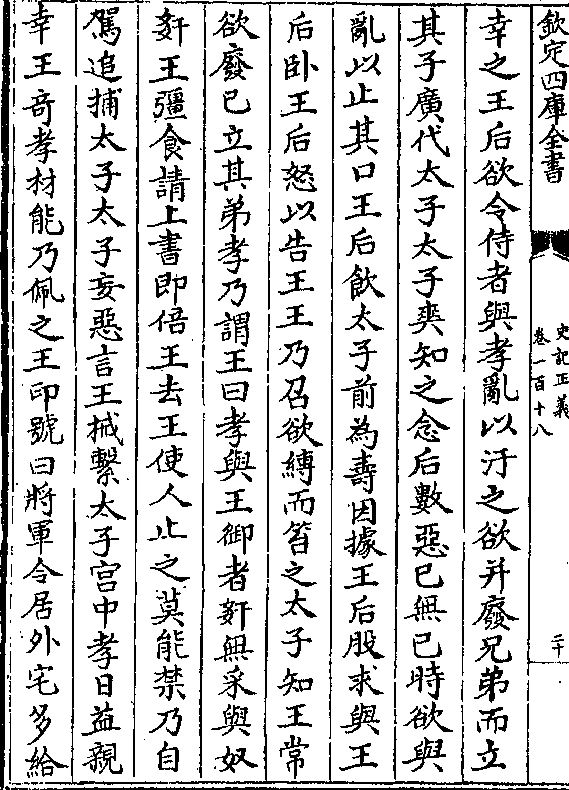 欽定四庫全書
史記正義
卷一百十八
二十
幸之王后欲令侍者與孝亂以汙之欲并廢兄弟而立
其子廣代太子太子爽知之念后數惡已無已時欲與
亂以止其口王后飲太子前為壽因據王后股求與王
后卧王后怒以告王王乃召欲縛而笞之太子知王常
欲廢已立其弟孝乃謂王曰孝與王御者姧無采與奴
姧王彊食請上書即倍王去王使人止之莫能禁乃自
駕追捕太子太子妄惡言王械繫太子宫中孝日益親
幸王竒孝材能乃佩之王印號曰將軍令居外宅多給